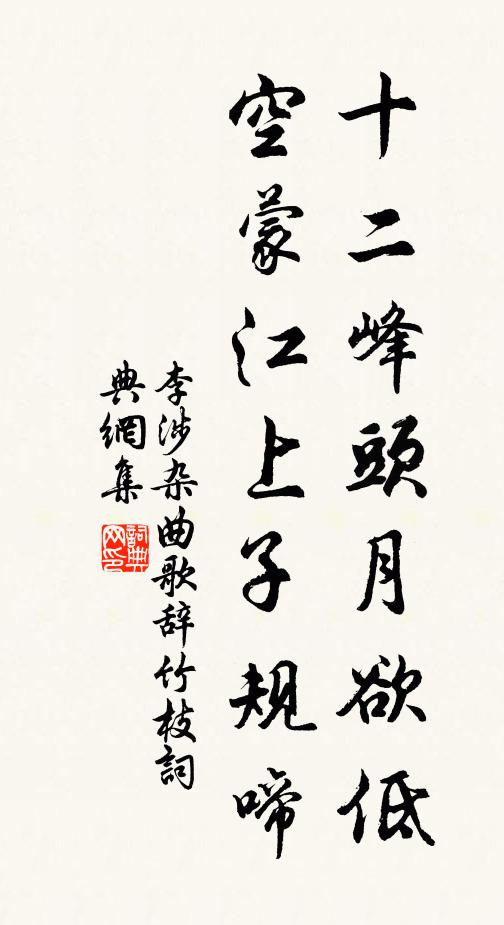 十二峰頭月欲低
空蒙江上子規啼
李涉杂曲歌辞竹枝詞
典網集
詞典网印